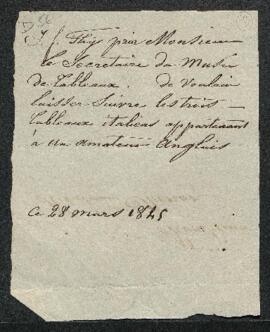 prie Monsieur
le Secretaire du Musée
de Tableaux. de Vouloir
laisser Suivre les trois
tableaux italiens appartenant
à un amateur Anglais
Ce 28 mars 1845